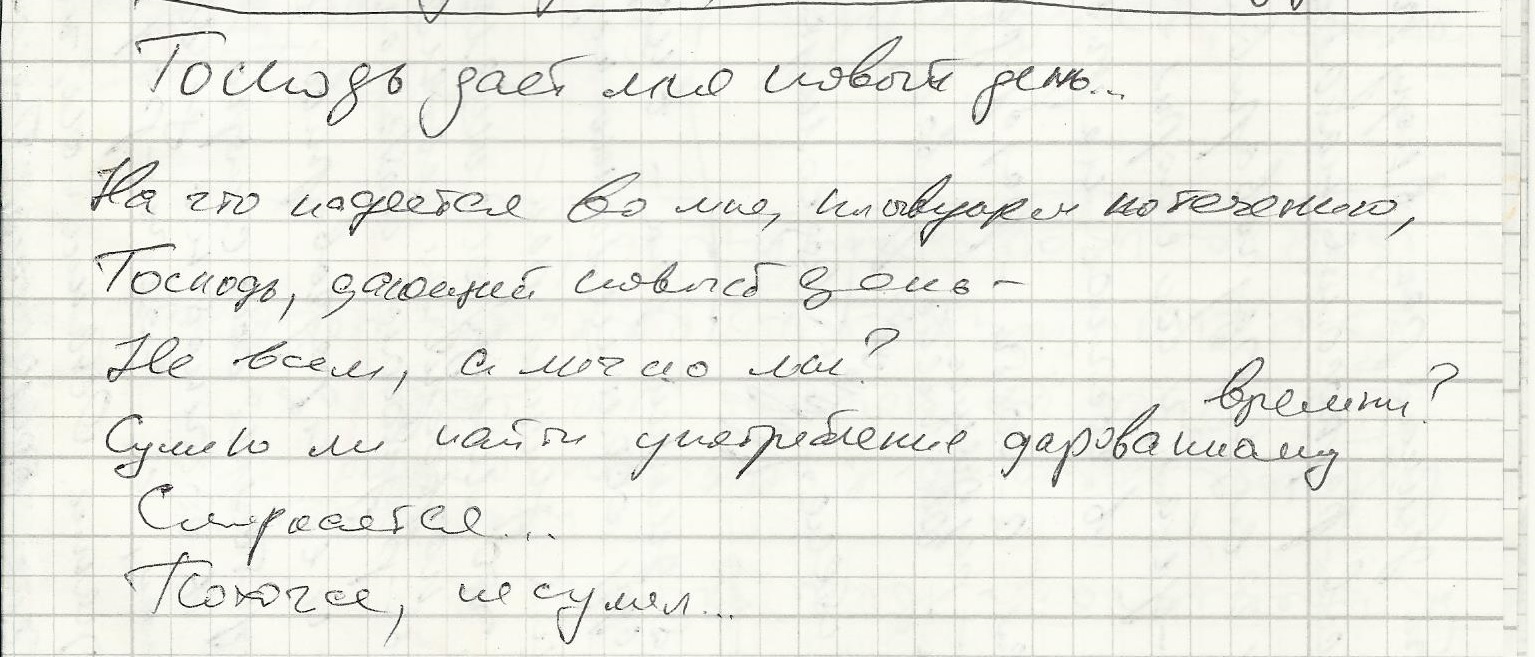 Господь дает мне новый день...
На что надеется во мне, плывущем по течению,
Господь, дающий новый день –
Не всем, а лично мне?
Сумею ли найти употребление дарованному
времени?
Смеркается...
Похоже, не сумел...